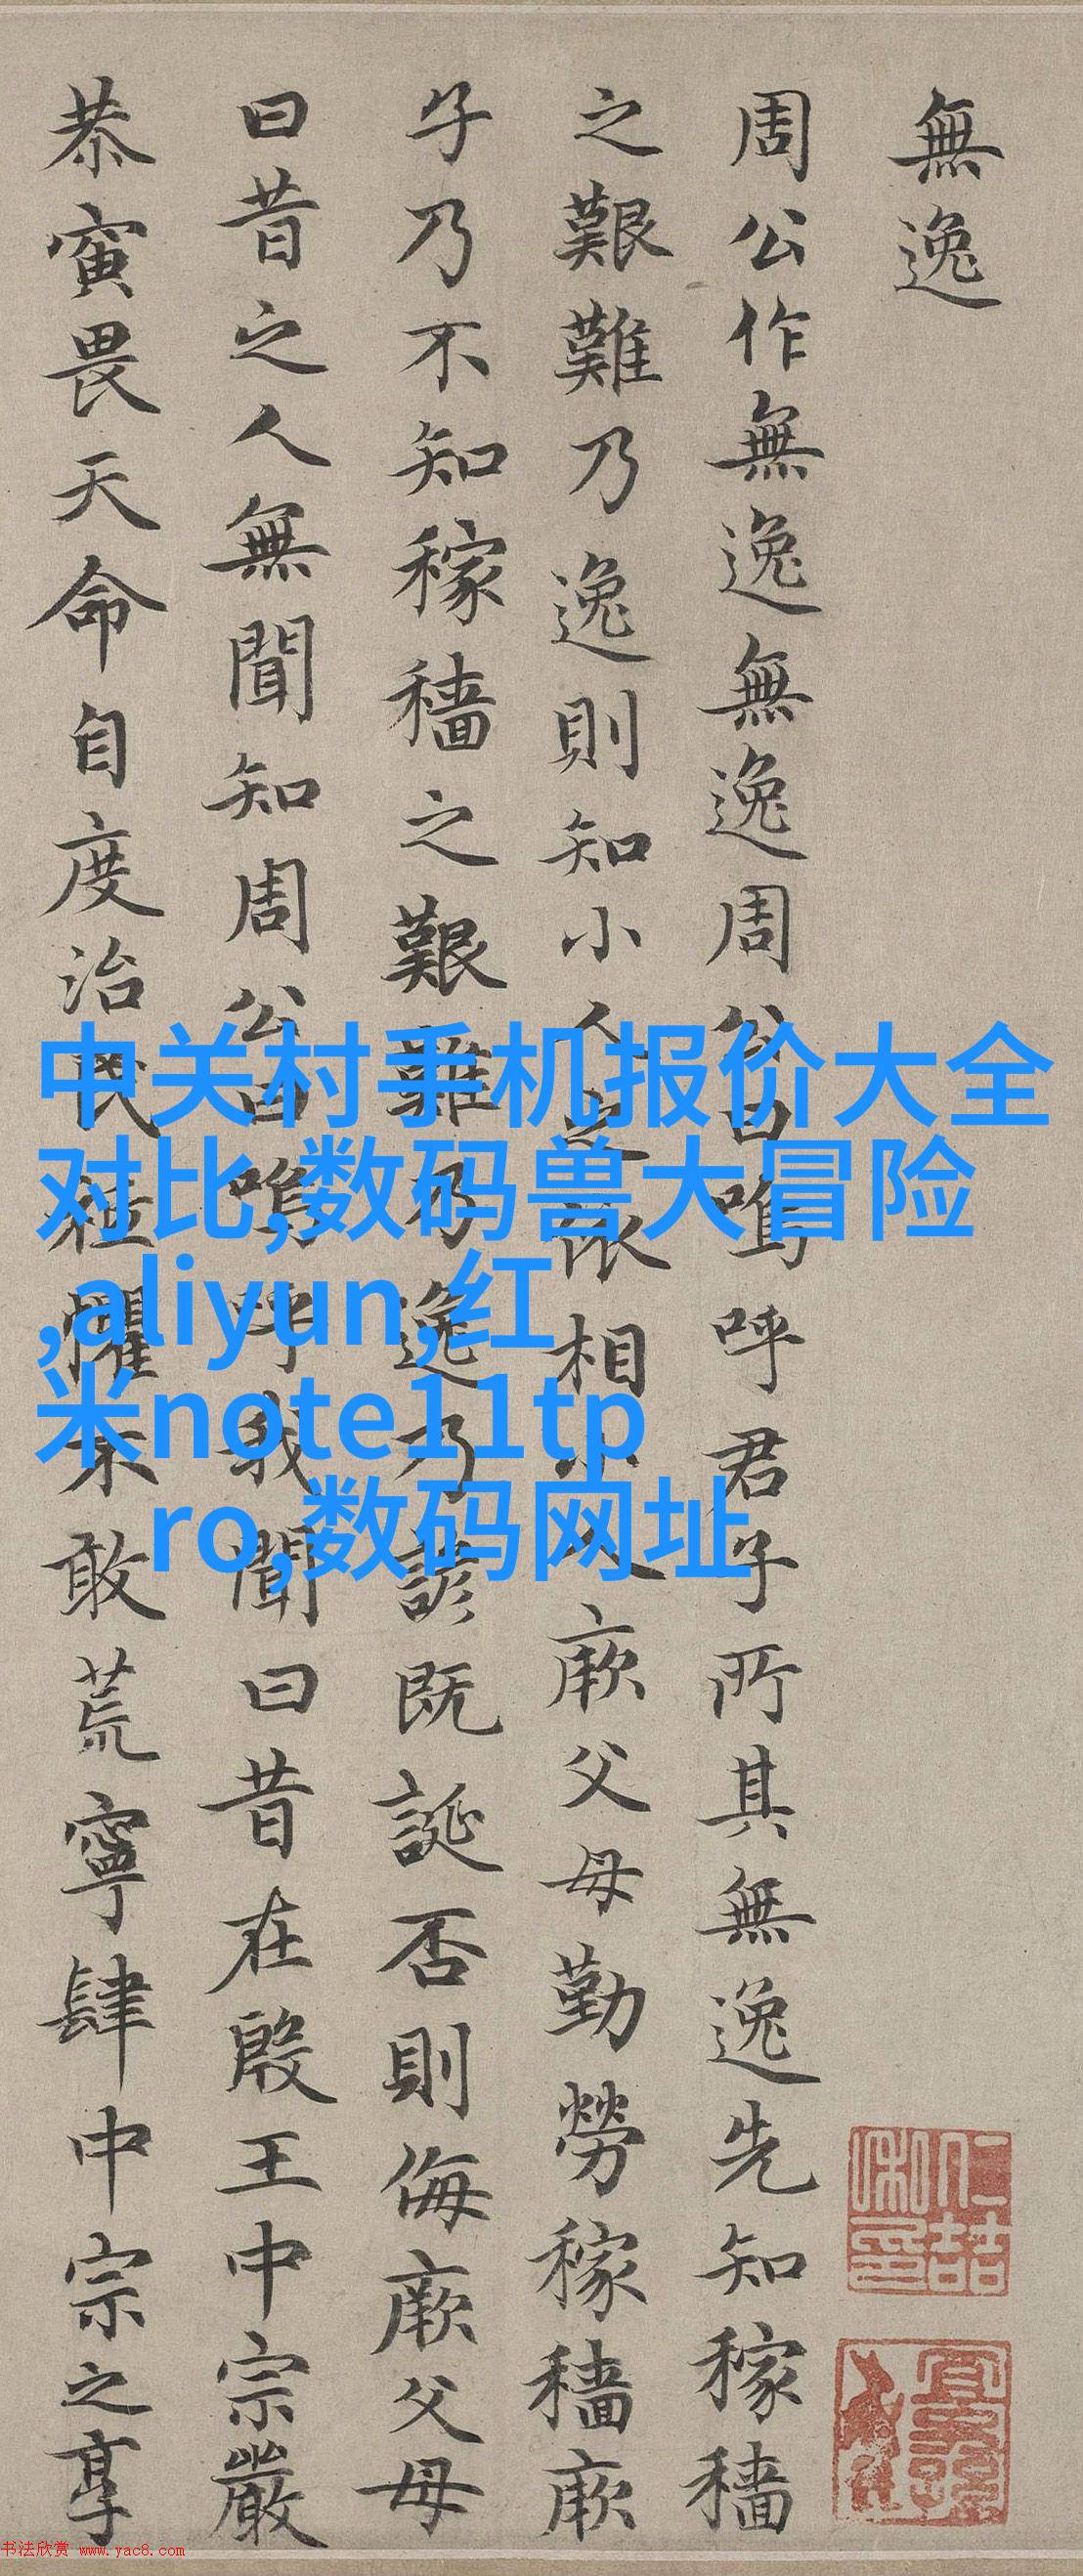 無逸
周公作無逸無逸周公曰嗚呼君子所其無逸先知稼穡
之艱難乃逸則知小人之依相小人厥父母勤勞稼穡厥
子乃不知稼穡之艱難乃逸乃諺既誕否則侮厥父母
曰昔之人無聞知周公曰嗚呼我聞曰昔在殷王中宗嚴
恭寅畏天命自度治民祗懼不敢荒寧肆中宗之享
中关村手机报价大全
对比,数码兽大冒险
,aliyun,红
米note11tp
ro,数码网址
书法欣赏 www.yac8.com